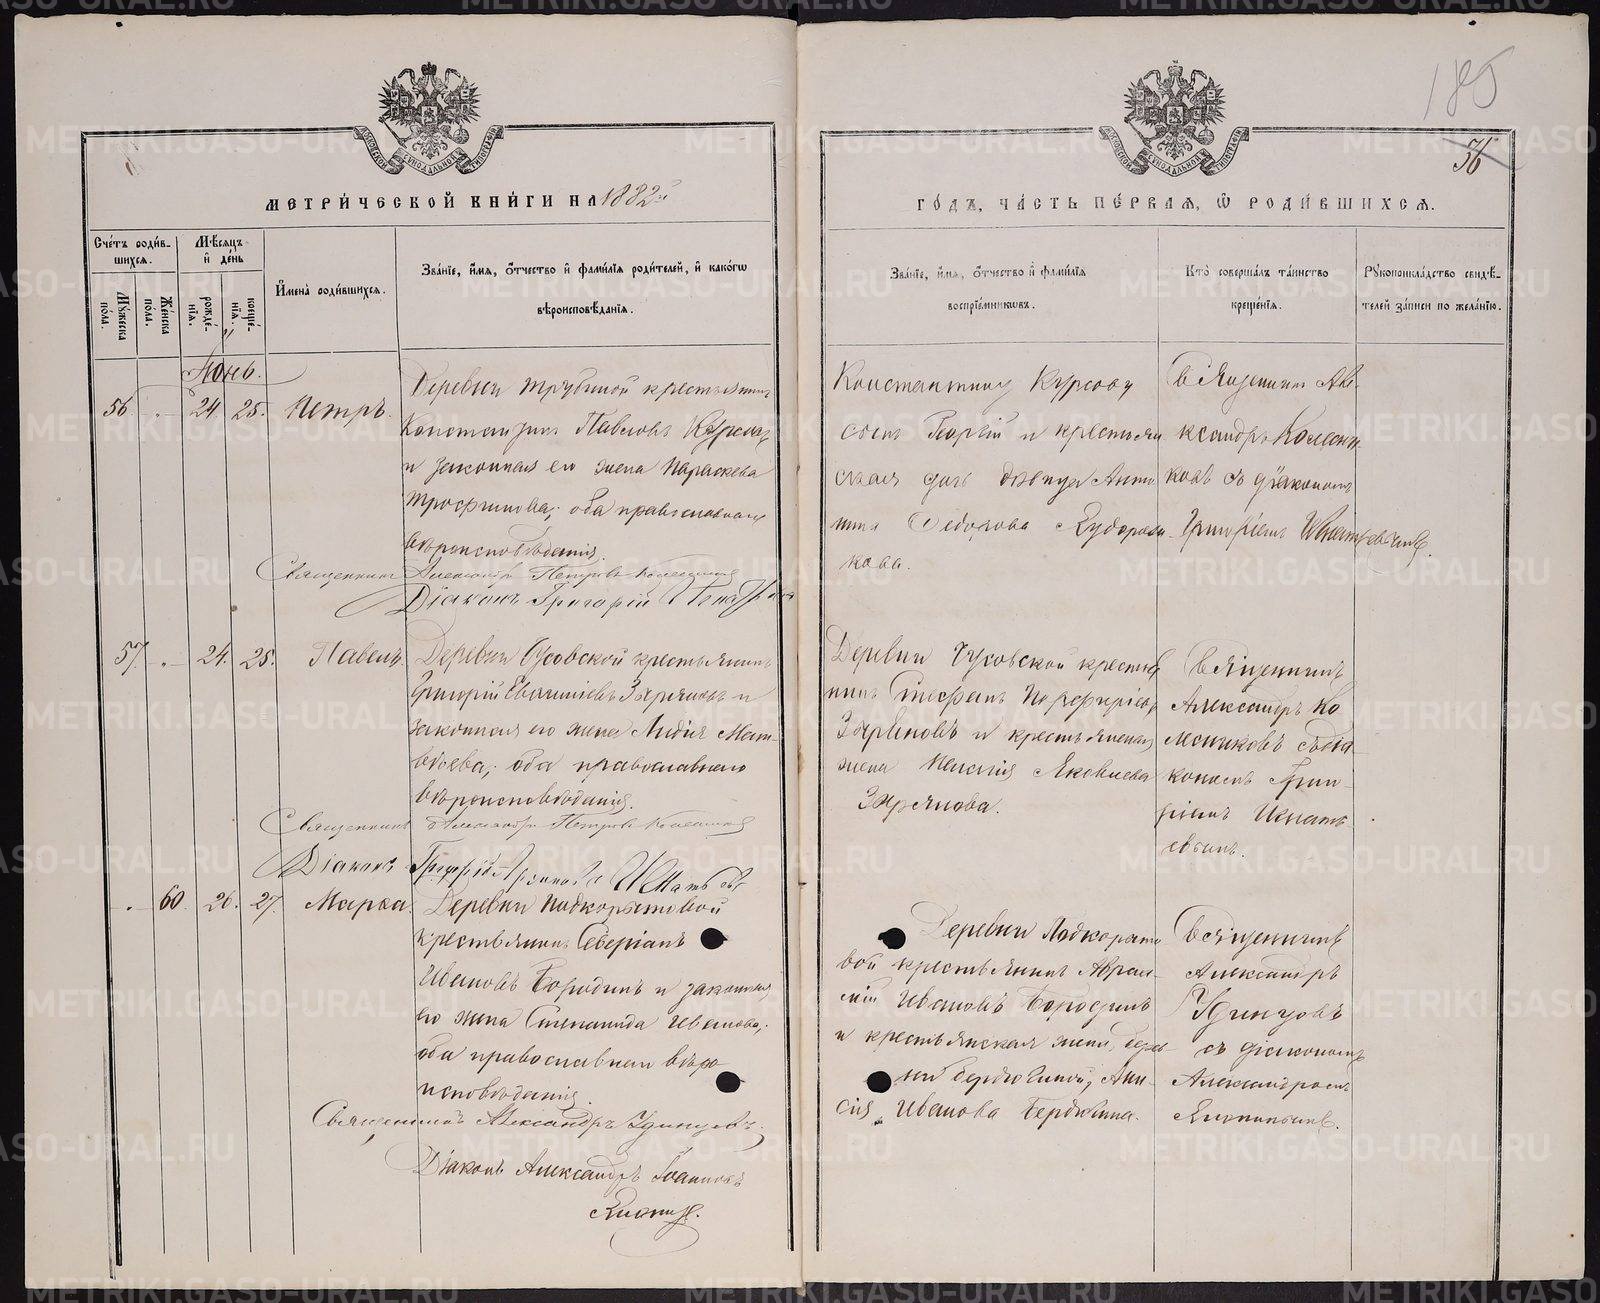 185
56
МЕТРИ́ЧЕСКОЙ КНИ́ГИ НА 1882й
ГО́ДЪ, ЧА́СТЬ ПЕ́РВАЯ, Ѽ РОДИ́ВШИХСЯ.
Счетъ родившихся.
Мѣсяцъ и день
Имена родившихся.
Званіе, имя, отчество и фамилія родителей, и какогѡ
вѣроисповѣданія.
Мужеска пола.
Женска пола.
рожденія.
крещенія.
Званіе, имя, отчество и фамилія
воспріемниковъ.
Кто совершалъ таинство
крещенія.
Рукоприкладство свидѣ-
телей записи по желанію.
Іюнь.
56. „ 24. 25. Петръ.
Деревни Трубиной крестьянинъ
Константинъ Павловъ Курсовъ
и законная его жена Параскева
Трофимова; оба православнаго
вѣроисповѣданія.
Священникъ Александръ Петровъ Колесников
Діаконъ Григорій
Константину Курсову
сынъ Георгій и крестьян
ская дочь дѣвица Анто
нина Ѳедорова
кова.
Священникъ Але-
ксандръ Колесни-
ковъ съ діакономъ
Григоріемъ Игнатьевымъ.
57. „ 24. 25. Павелъ.
Деревни Чусовской крестьянинъ
Григорій Евѳиміевъ Зыряновъ и
законная его жена Лидія Мат-
вѣева; оба православнаго
вѣроисповѣданія.
Священникъ Александръ Петровъ Колесников
Діаконъ Григорій Игнатьев
Деревни Чусовской крестья
нинъ Стефанъ Порфиріевъ
Зыряновъ и крестьянская
жена Яковлева
Зырянова.
Священникъ
Александръ Ко
лесниковъ съ діа
кономъ Григо-
ріемъ Игнать-
евымъ.
„ 60. 26. 27. Марѳа.
Деревни Подкорытовой
крестьянинъ Северіанъ
Ивановъ Бородинъ и законная
его жена Степанида Иванова;
оба православнаго вѣро
исповѣданія.
Священникъ Александръ Удинцевъ.
Діаконъ Александръ Іоанновъ
Деревни Подкорыто
вой крестьянинъ Авраа-
мій Ивановъ Бородинъ
и крестьянская жена, дерев-
ни Бердюгиной, Ани-
сія Иванова Бердюгина.
Священникъ
Александръ
Удинцовъ
съ діакономъ
Александромъ